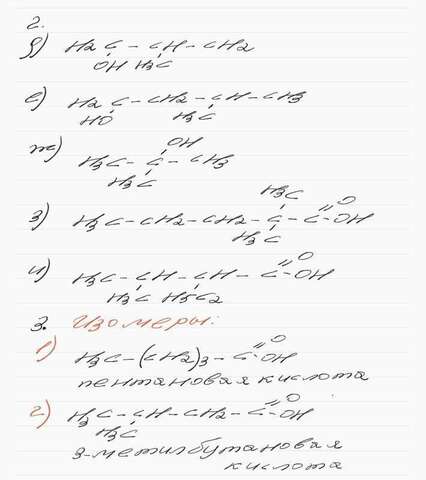 2.
д) H2C - CH - CH2
OH H3C
е) H2C - CH2 - CH - CH3
HO H3C
OH
ж) H3C - C - CH3
H3C
H3C O
з) H3C - CH2 - CH2 - C - C = OH
H3C
O
и) H3C - CH - CH - C = OH
H3C H5C2
3. Изомеры:
O
1) H3C - (CH2)3 - C = OH
пентановая кислота
O
2) H3C - CH - CH2 - C = OH
H3C
3-метилбутановая
кислота